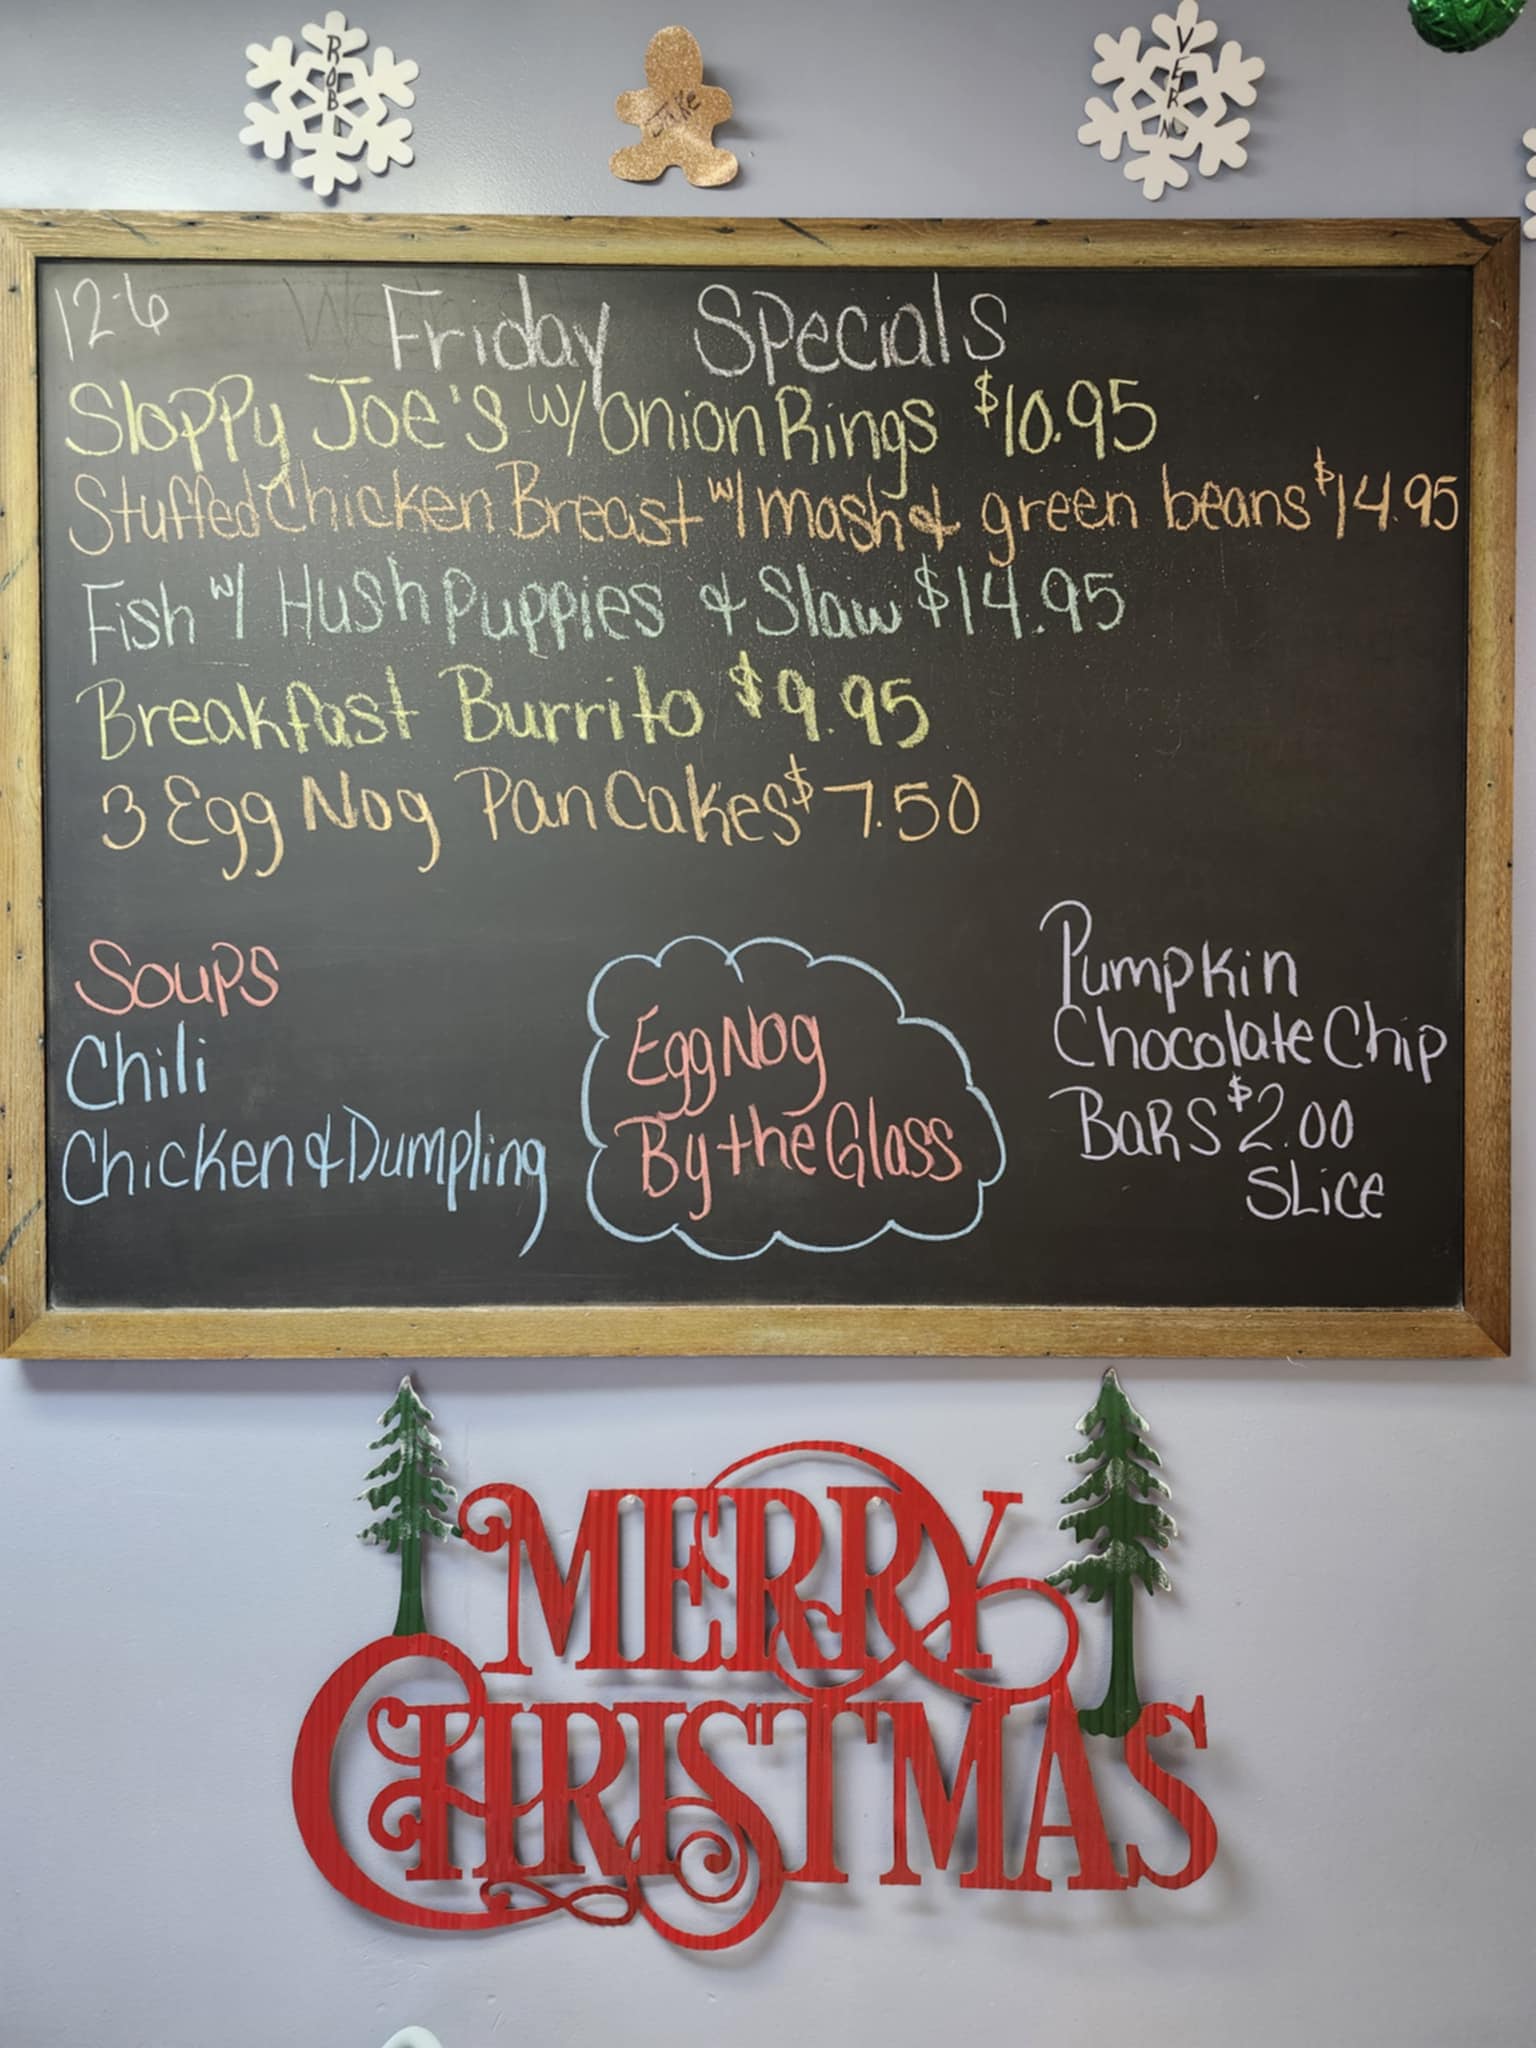 ROB
Jake
VERN
12-6
Friday Specials
Sloppy Joe's w/ Onion Rings $10.95
Stuffed Chicken Breast w/ mash & green beans $14.95
Fish w/ Hush Puppies & Slaw $14.95
Breakfast Burrito $9.95
3 Egg Nog PanCakes $7.50
Soups
Chili
Chicken & Dumpling
Egg Nog
By the Glass
Pumpkin
Chocolate Chip
BARS $2.00
SLice
MERRY
CHRISTMAS